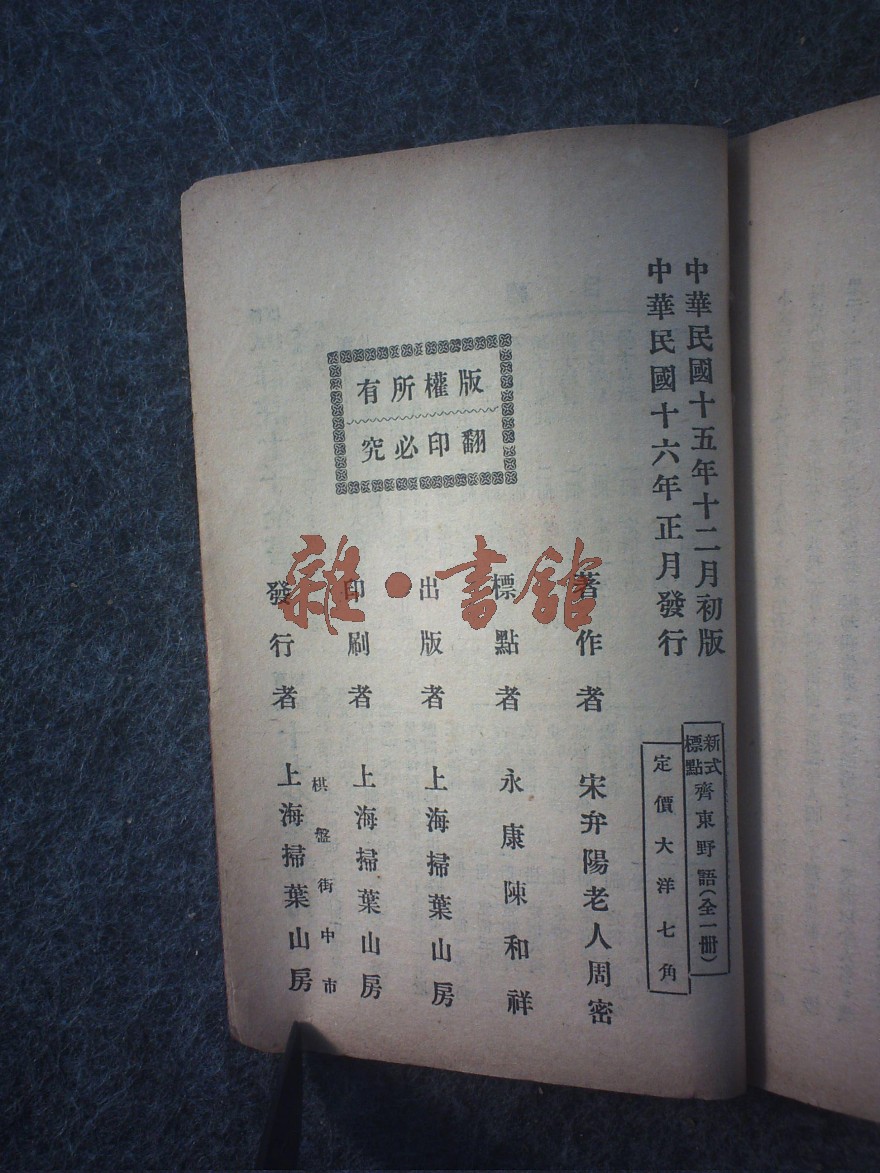 中華民國十五年十二月初版
中華民國十六年正月發行
新式標點齊東野語（全一册）
定價大洋七角
著作者 宋弁陽老人周密
標點者 永康陳和祥
出版者 上海掃葉山房
印刷者 上海掃葉山房
棋盤街中市
發行者 上海掃葉山房
版權所有
翻印必究
雜·書館